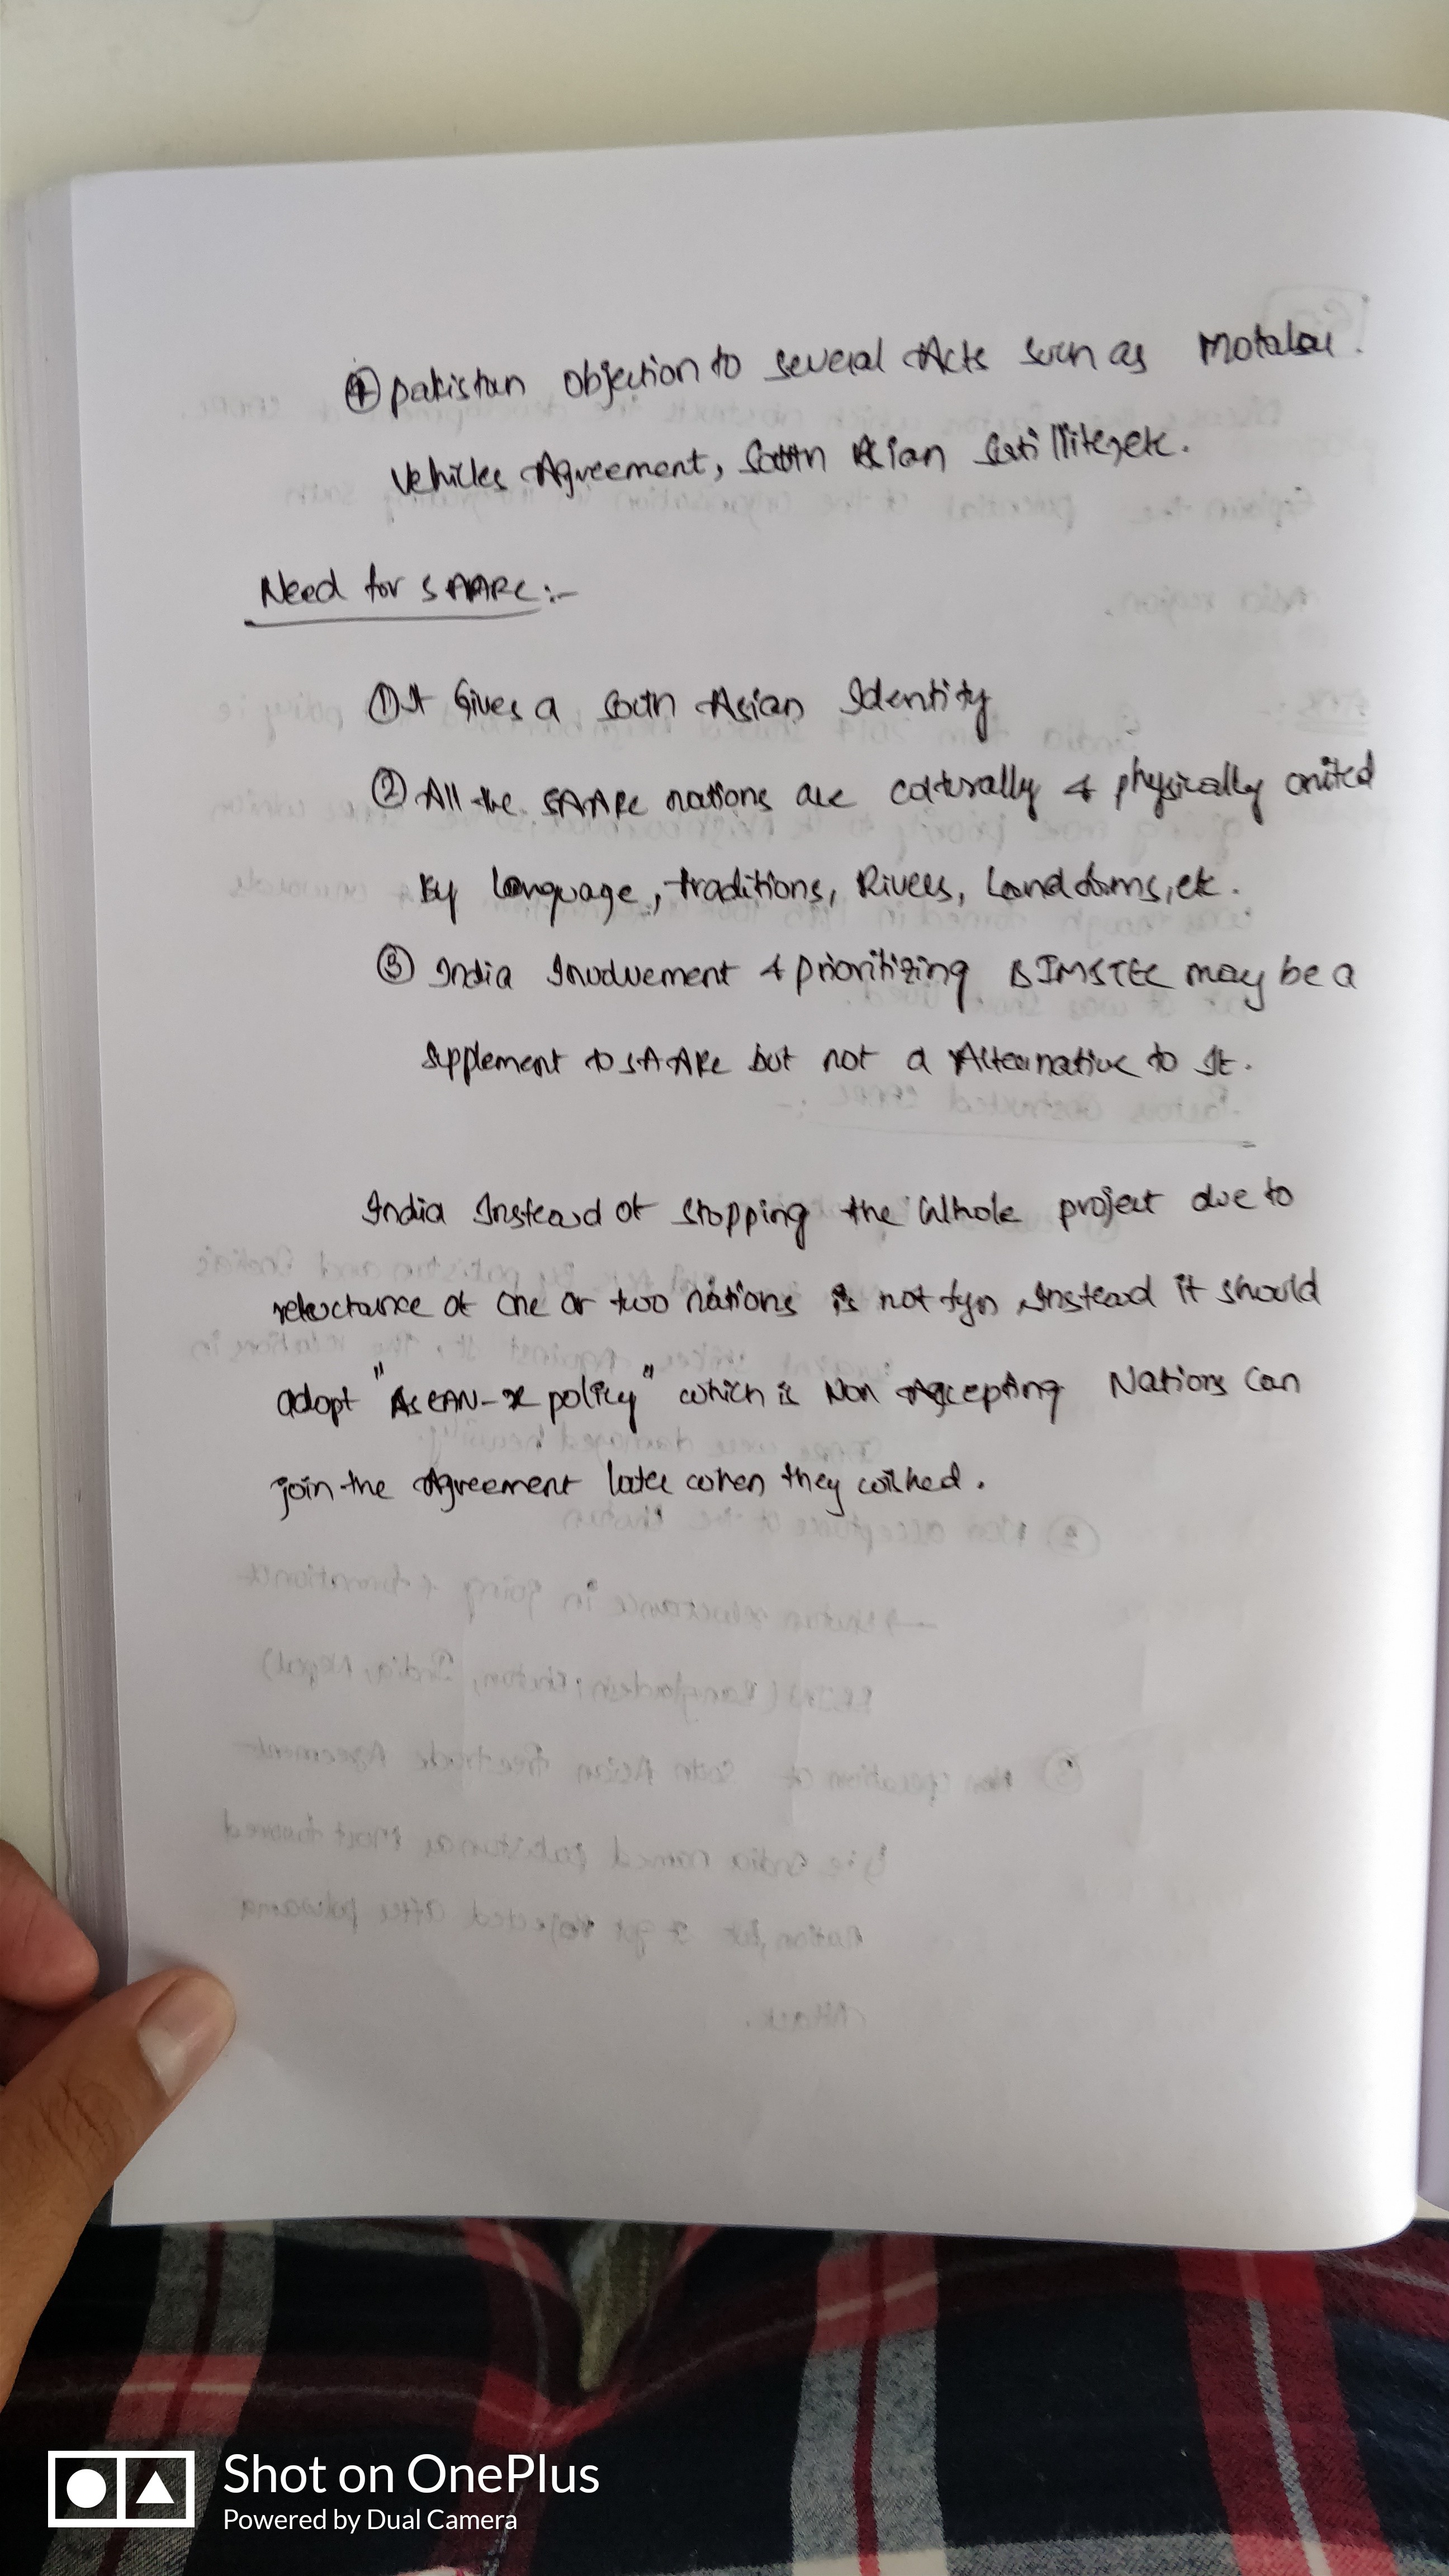 ④ pakistan objection to several Acts such as
Vehicles Agreement, South Asian Satillite, etc.
Need for SAARC :-
① It Gives a South Asian Identity
② All the SAARC nations are culturally & physically united
by language, traditions, Rivers, Landforms, etc.
③ India Involvement & prioritizing BIMSTEC may be a
Supplement to SAARC but not a Alternative to It.
India Instead of Stopping the Whole project due to
reluctance of one or two nations is not Instead it should
adopt "ASEAN-X policy" which is Non Accepting Nations Can
join the Agreement later when they wished.
Shot on OnePlus
Powered by Dual Camera